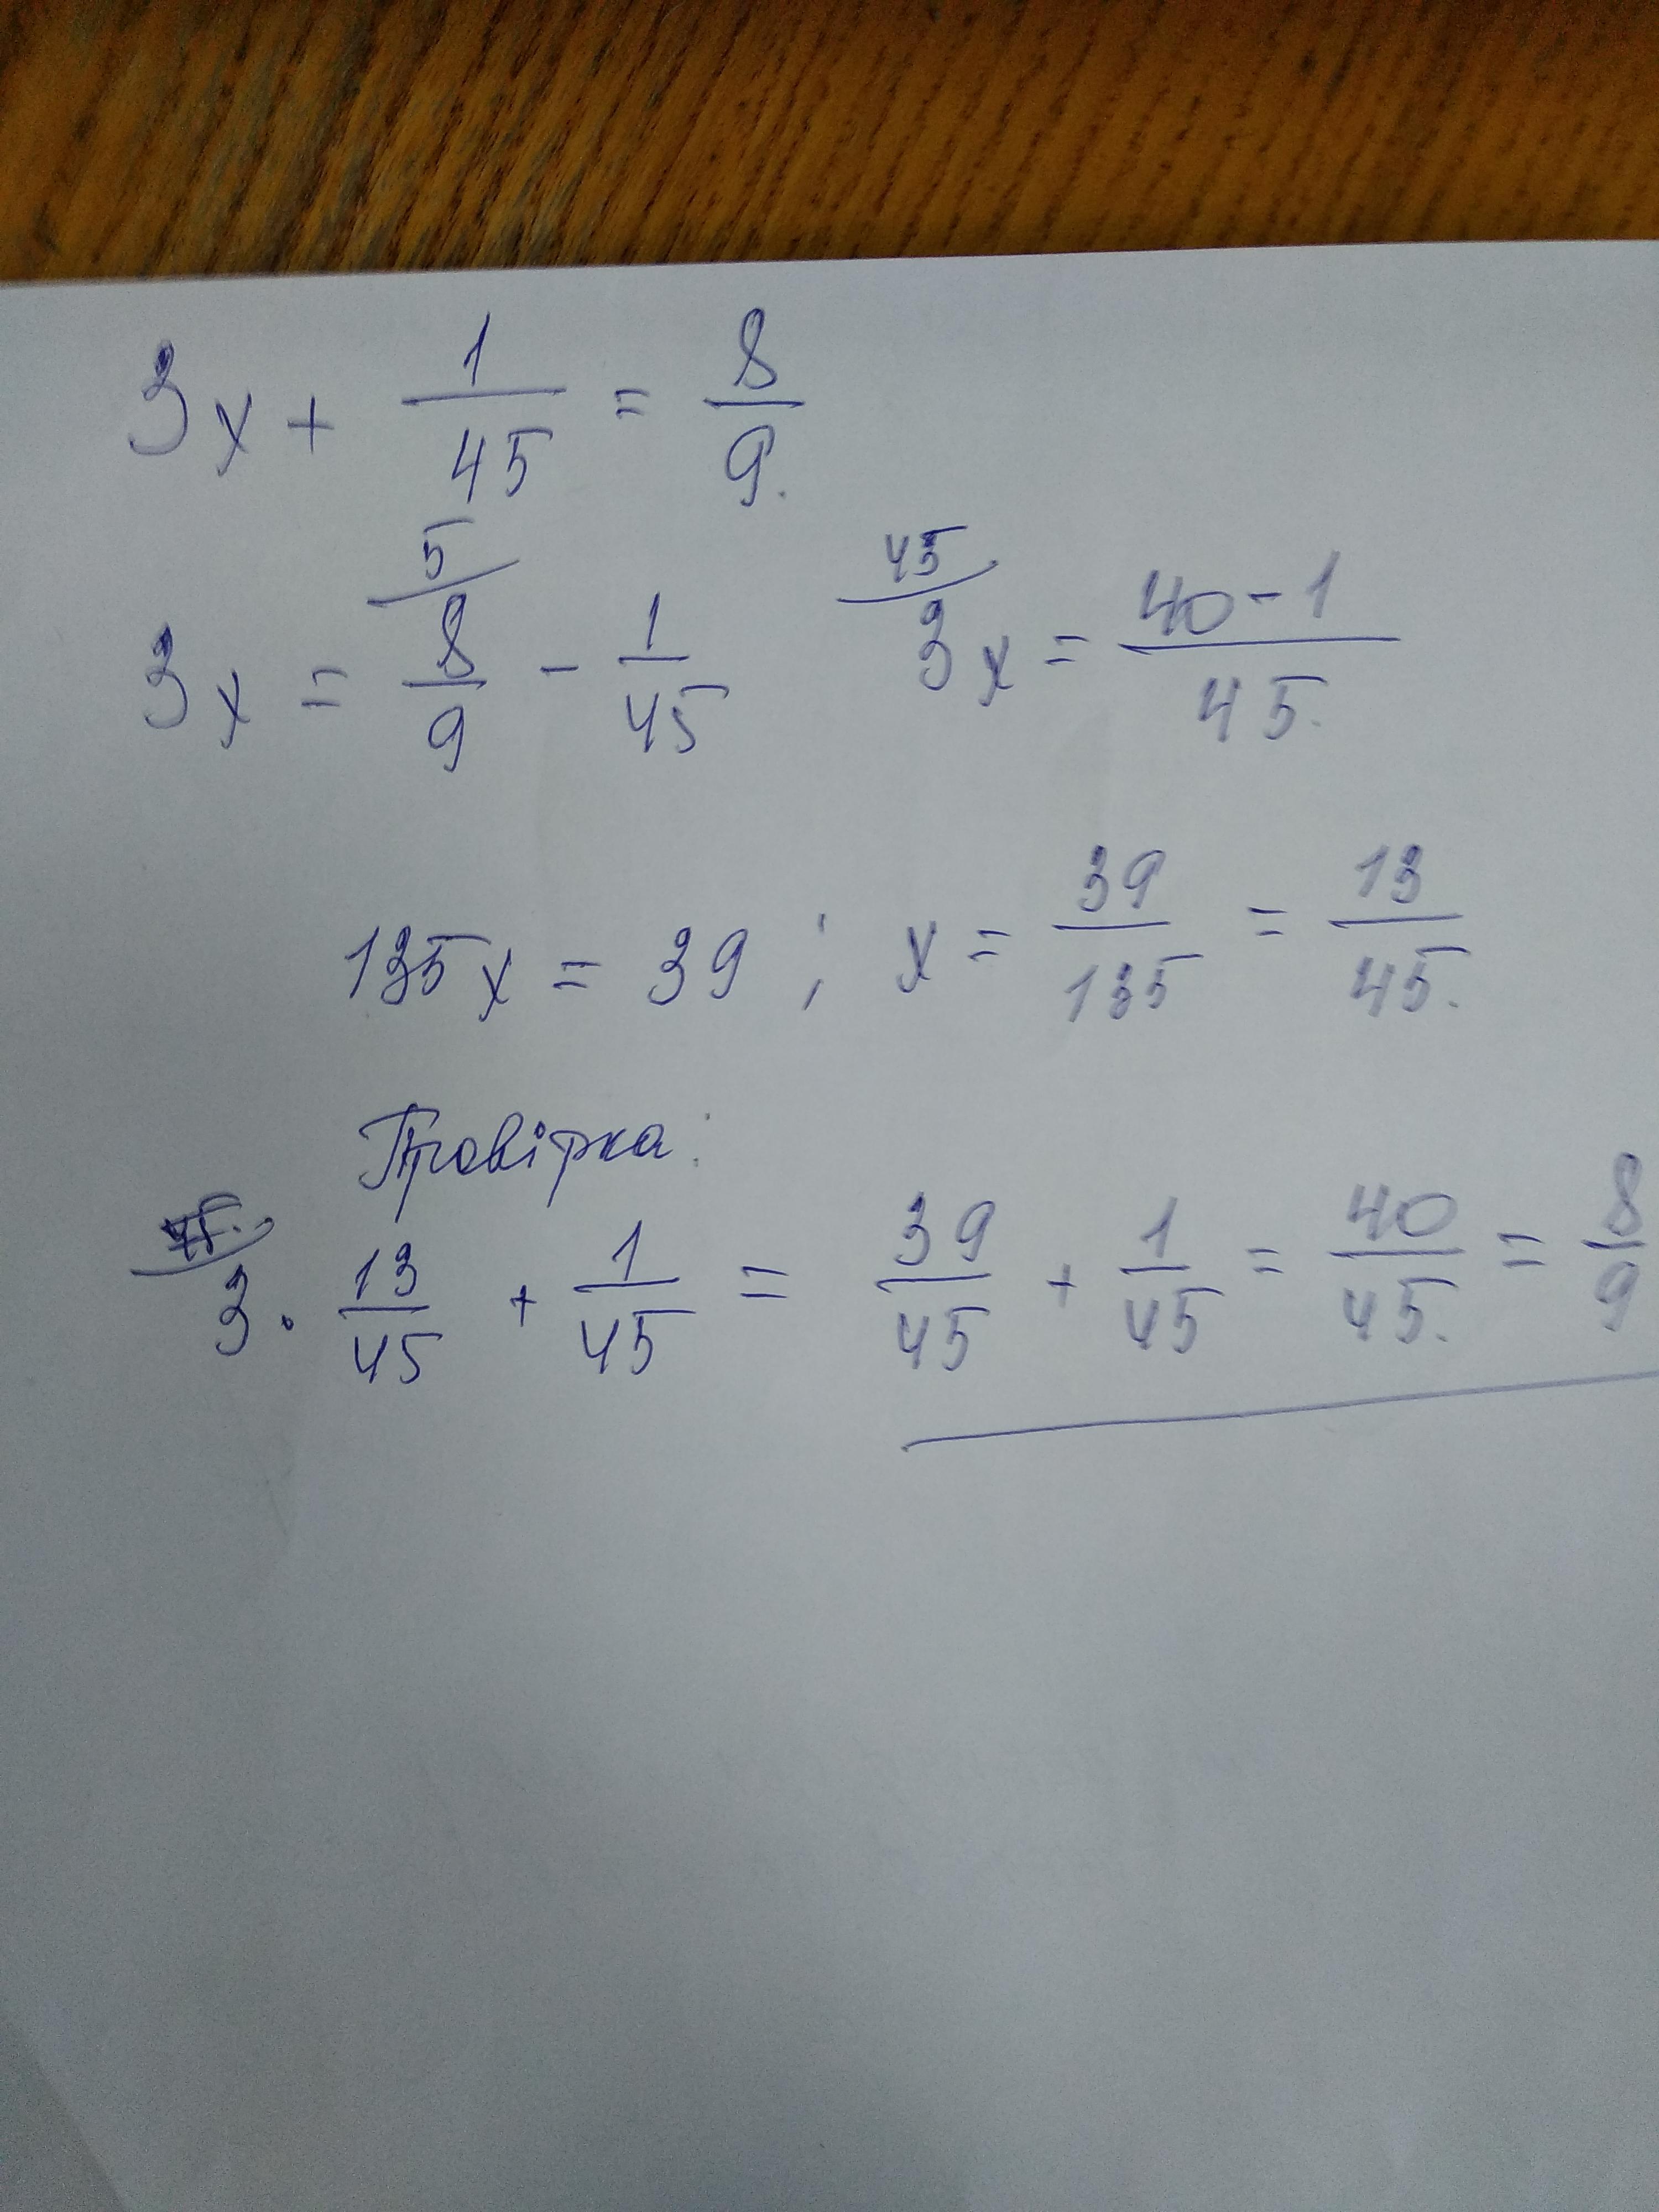 3x + 1/45 = 8/9.
3x = 5/ 8/9 - 1/45   45/ 3x = 40-1/45.
135x = 39 ; x = 39/135 = 13/45.
Провірка:
3 · 13/45 + 1/45 = 39/45 + 1/45 = 40/45. = 8/9